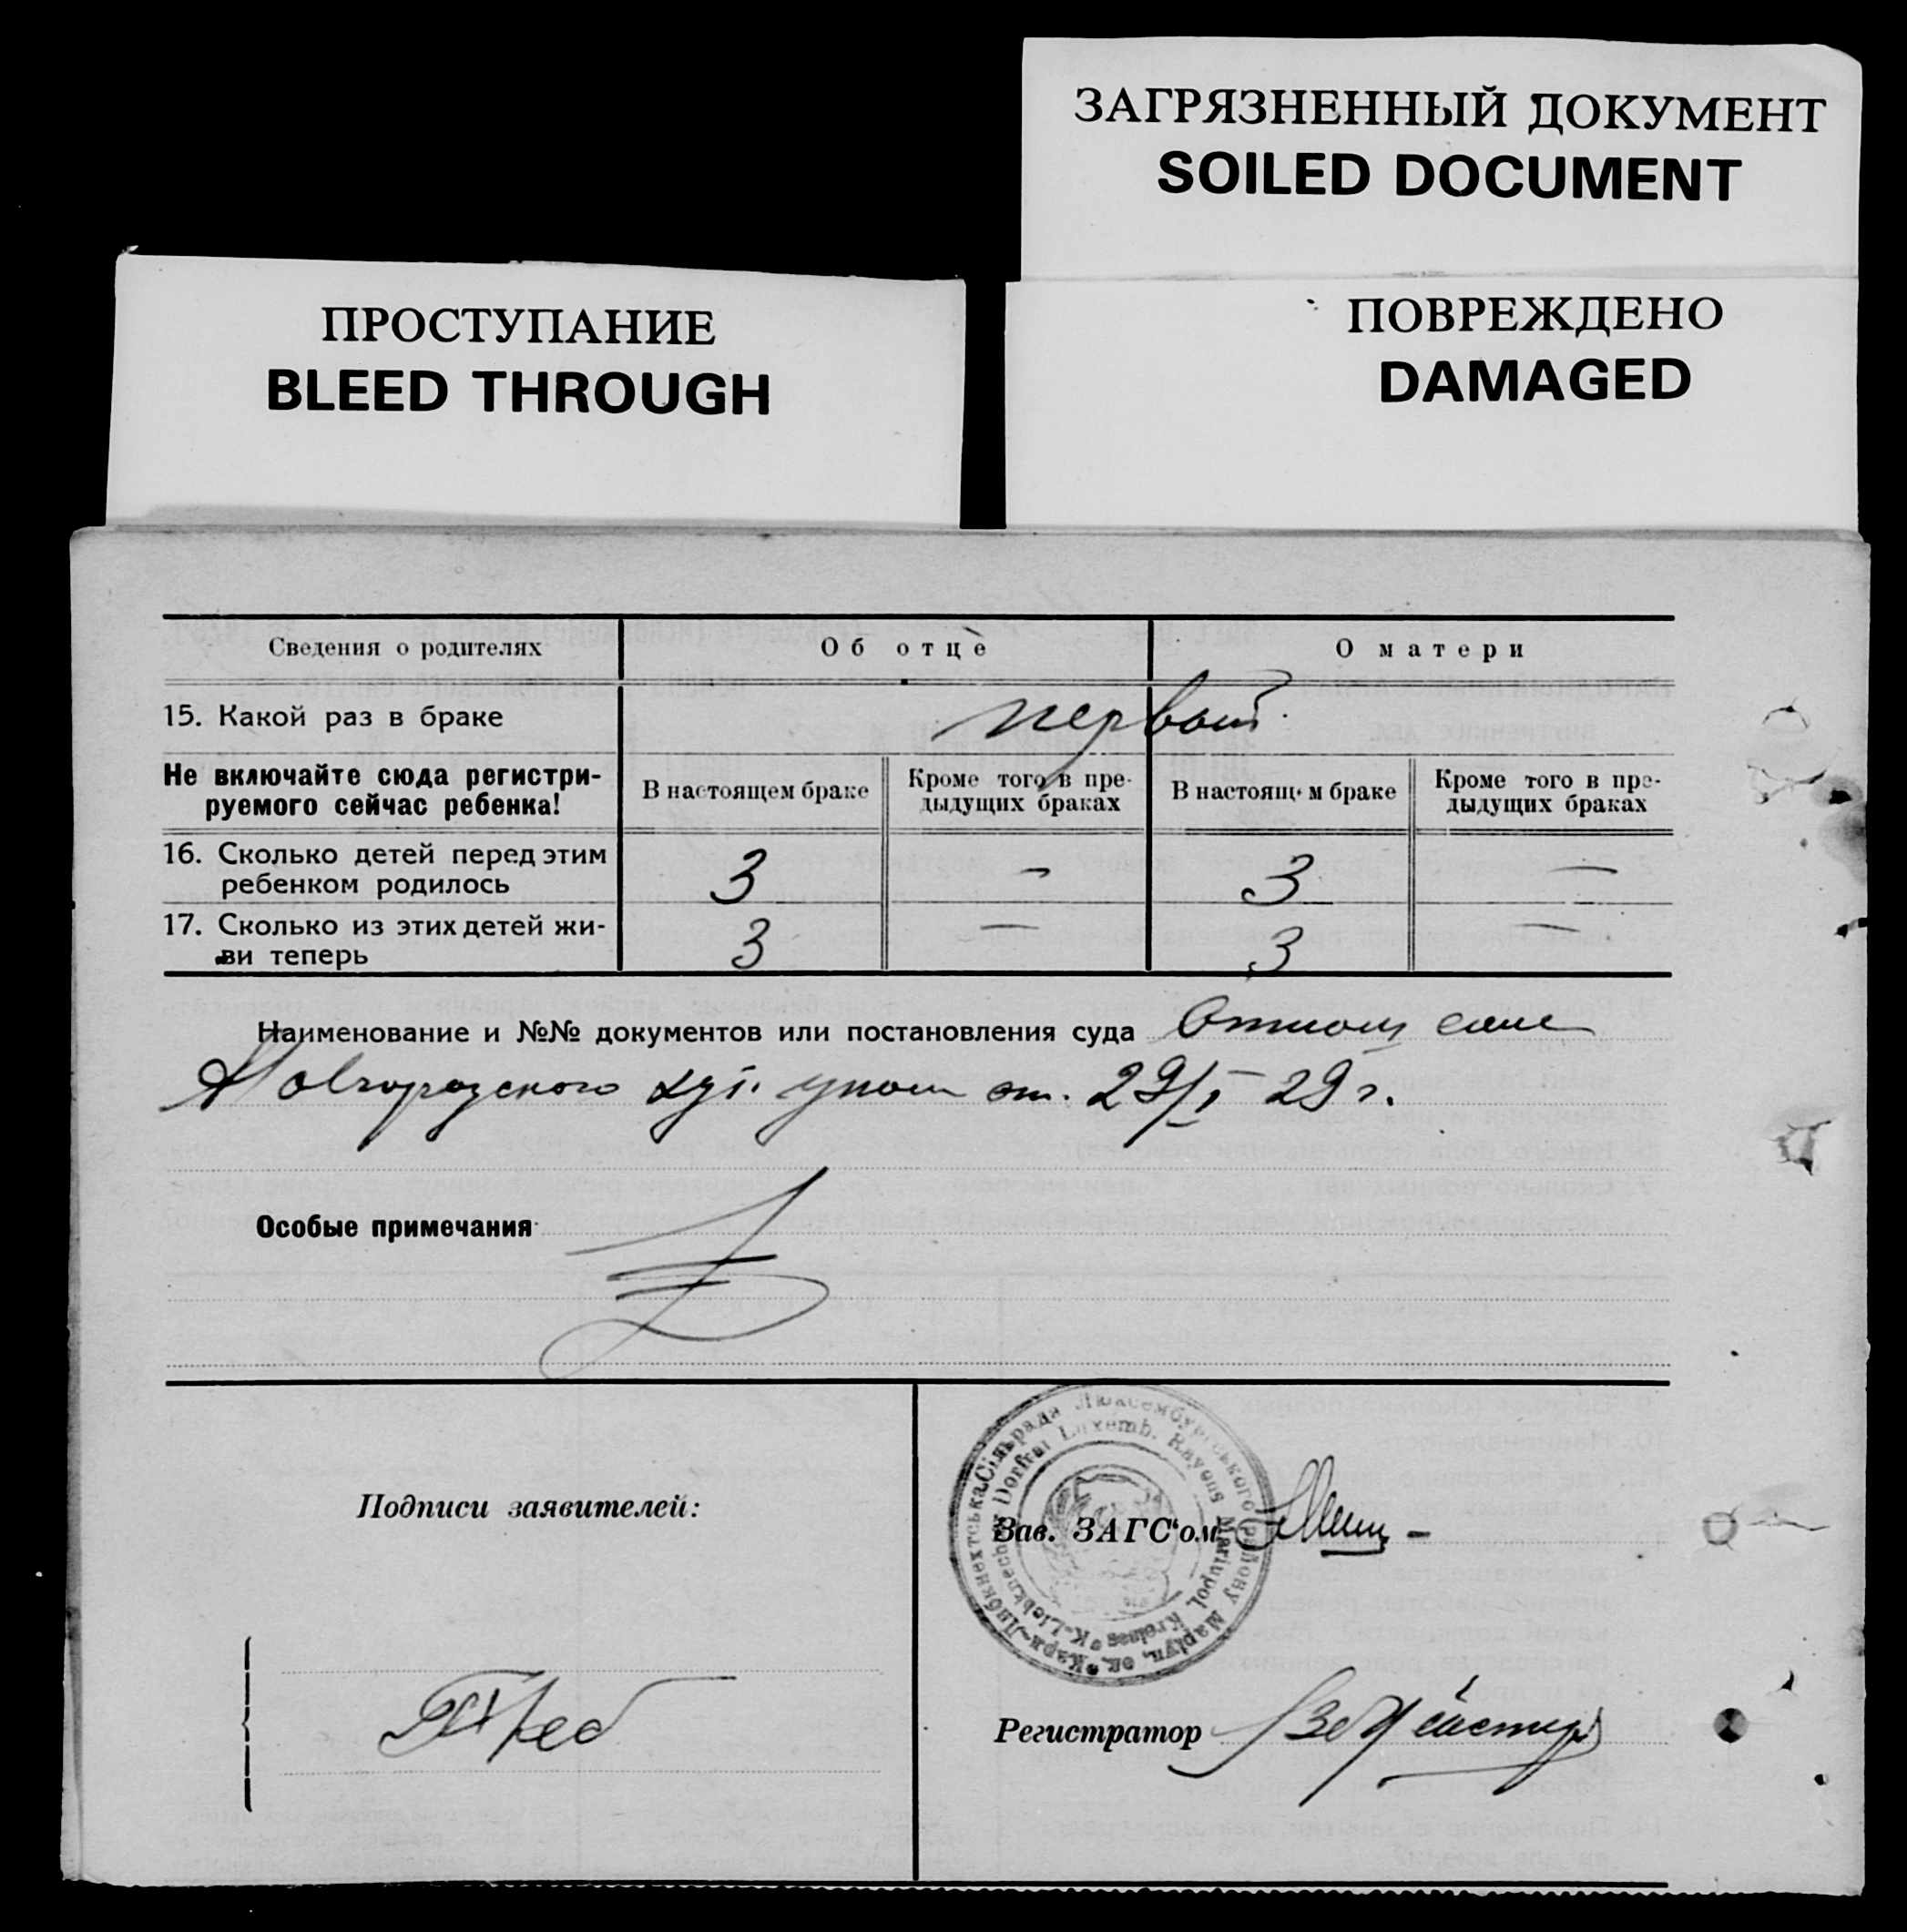 ЗАГРЯЗНЕННЫЙ ДОКУМЕНТ
SOILED DOCUMENT
ПРОСТУПАНИЕ
BLEED THROUGH
ПОВРЕЖДЕНО
DAMAGED
Сведения о родителях Об отце О матери
15. Какой раз в браке первый
Не включайте сюда регистри-
руемого сейчас ребенка!
В настоящем браке
Кроме того в пре-
дыдущих браках
В настоящ м браке
Кроме того в пре-
дыдущих браках
16. Сколько детей перед этим
ребенком родилось
3 - 3 —
17. Сколько из этих детей жи-
ви теперь
3 — 3 —
Наименование и №№ документов или постановления суда
Новгородского от. 29/I 29 г.
Особые примечания
Подписи заявителей:
Зав. ЗАГС'ом
Карл-Либкнехтська Сільрада Люксембургського Району Маріуп. ок.
K-Liebknecht Dorfrat Luxemb. Rayons Mariupol. Kreises
Регистратор